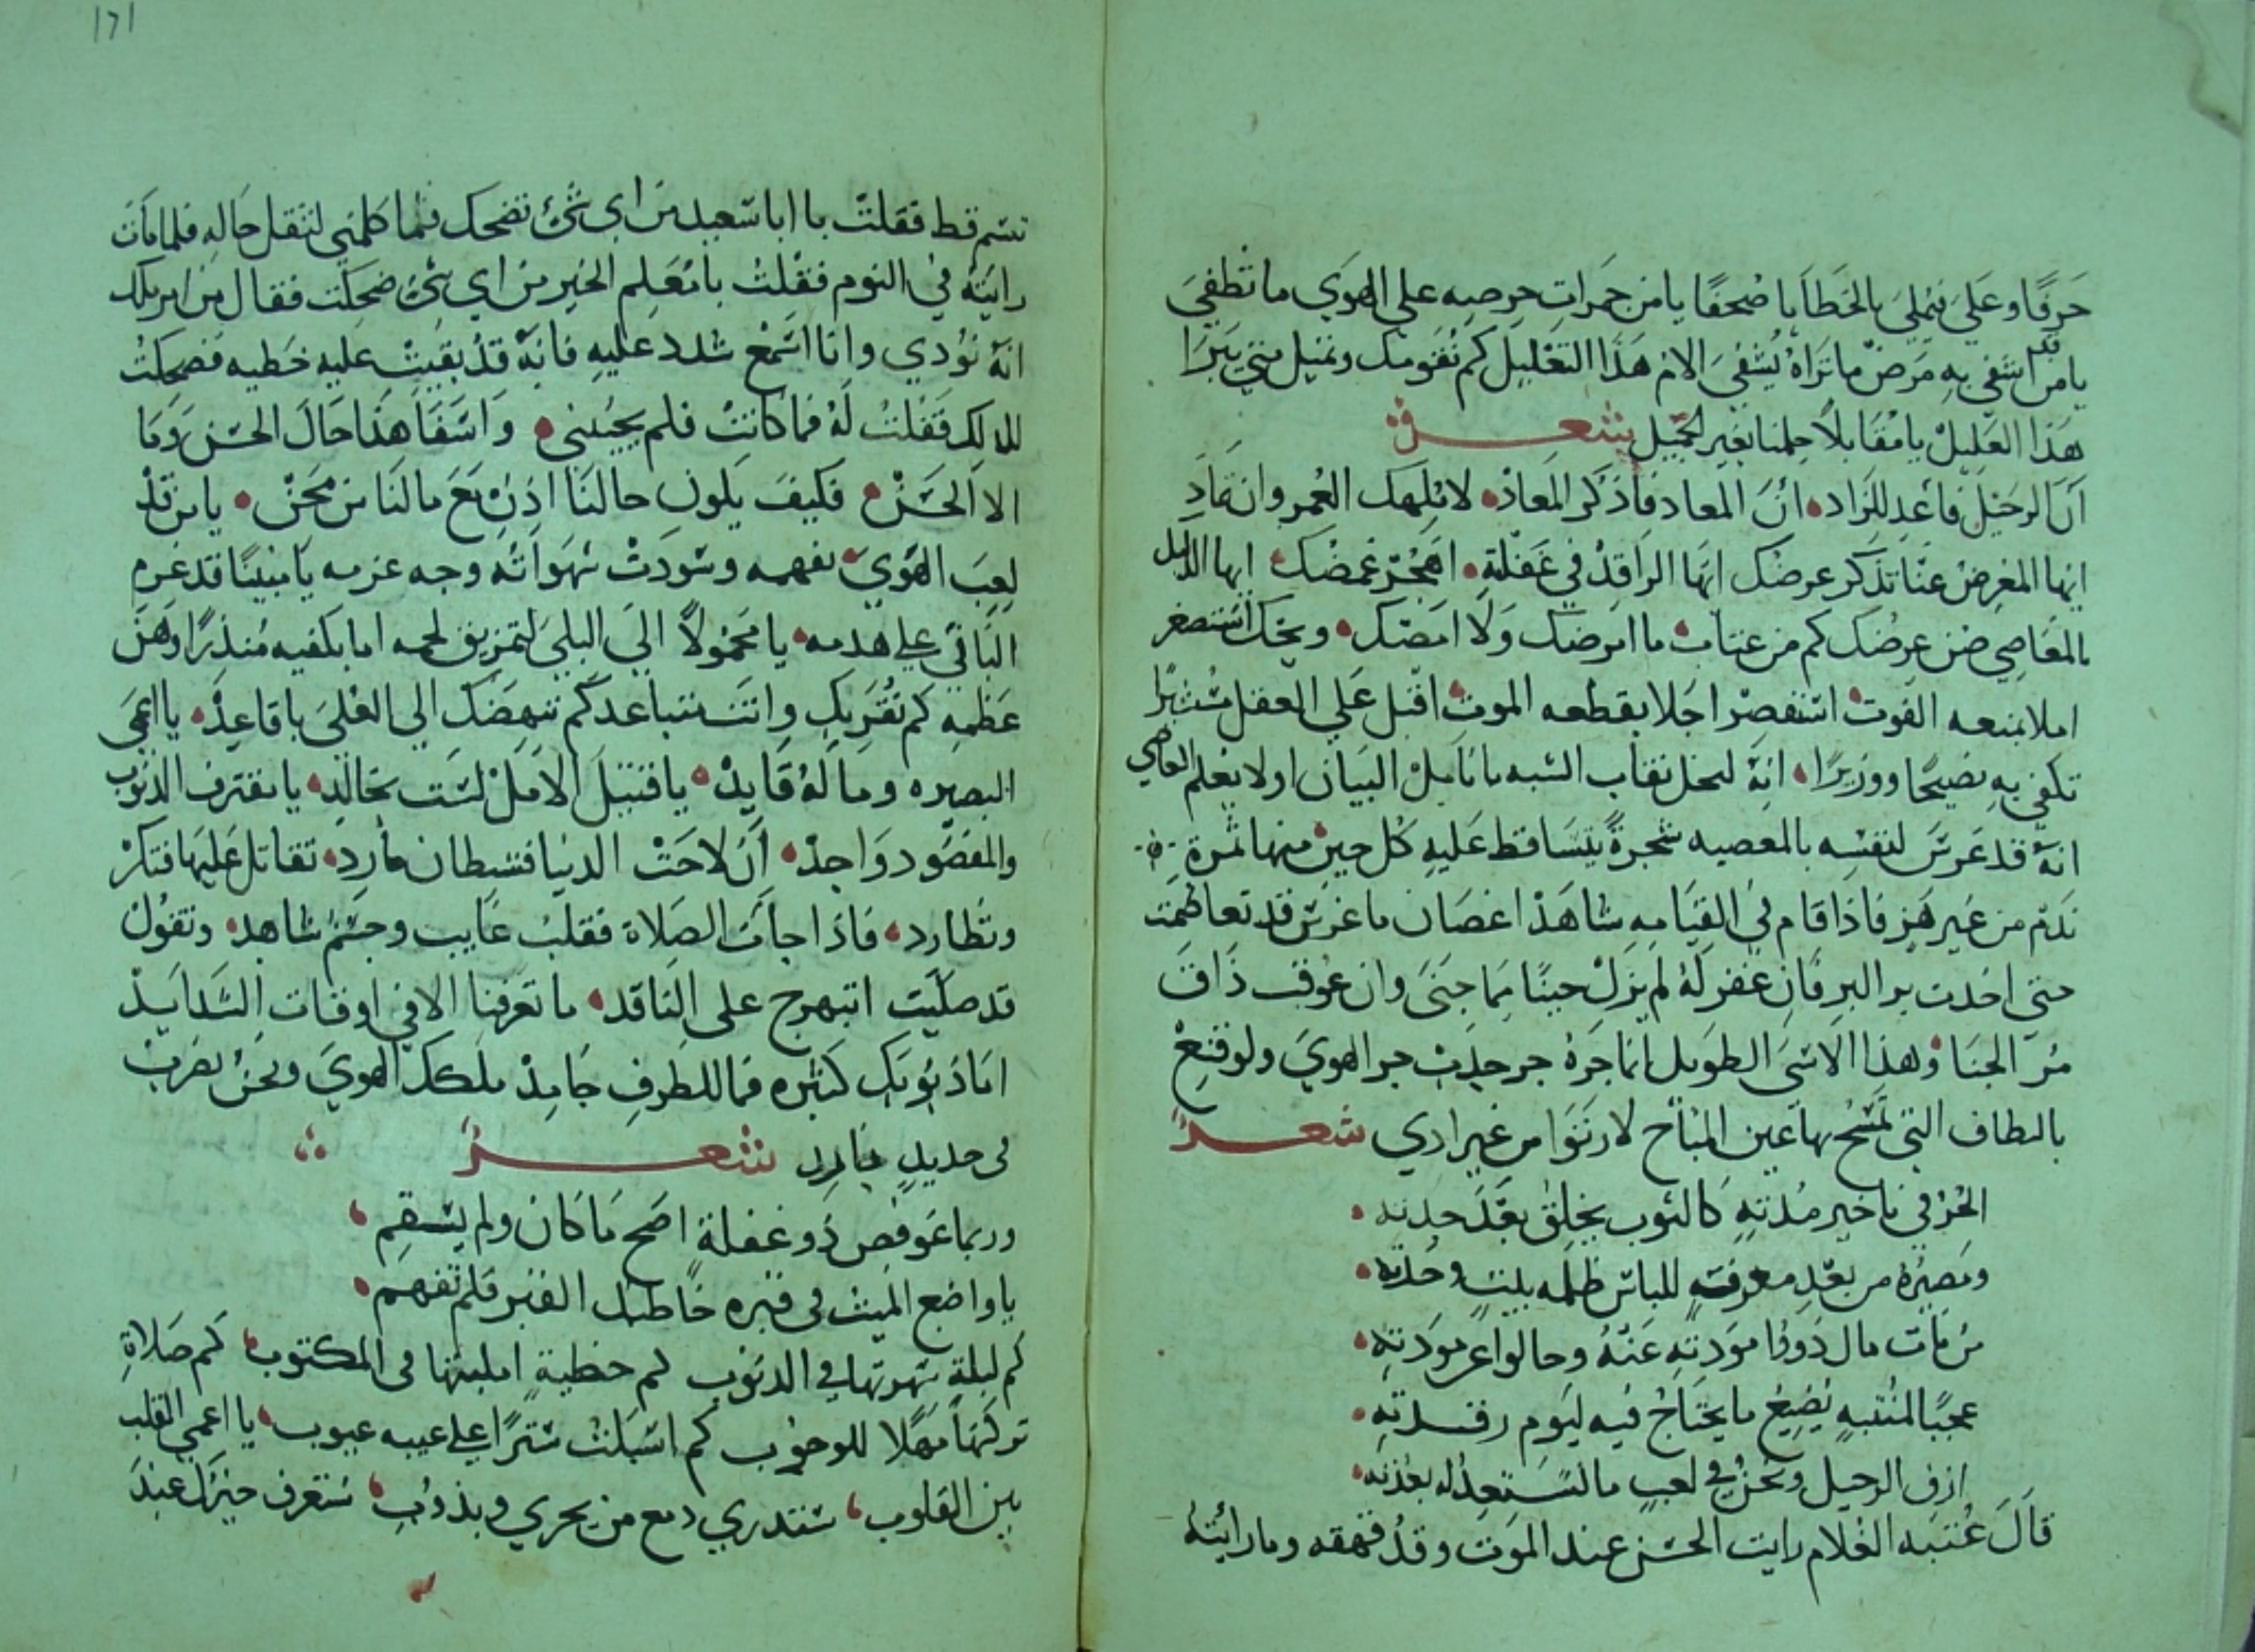 حَرفًا وعَلَي نيلي بالخَطَايا صُحفًا يا من جَمَراتِ حِرصِه علي الهوَي ما تطفيَ
يا من قد اشفي بهِ مَرضٌ ما تراهُ يُشفيَ الام هَذا التعْليل كم نُقَومك وتميل متي يَبرَا
هَذا العَليلْ يا مُقَابلاً حِلمنا بغَير الجميل شعر
آنَ الرحَيلَ فأعَدِ للزاد، أنَ المعاد فاذكر المعاد، لا يلهك العُمر وان تمادِ
ايها المعرِض عنّا تذكر عرضك ايَها الراقدْ في غَفلةٍ، اهجُر غمضكَ، ايها الذليل
بالمعَاصِي صُن عِرضك كم من عتاب ما امرضك وَلا امضك، ويحك استصغر
املا يمنعه الفوت استقصِر اجَلا يقطعه الموت اقبل عَلي العقل مستشيرًا
تكفي بهِ نصيحًا ووزيرًا، انهَ ليحل نقاب الشبه بانامِل البيَان اولا يعْلم العاصي
انهَ قد غرسَ لنفسِه بالمعصيه شجرةً يتسَاقط عَليهِ كل حين منها ثمرة
نَدَم من غَير هَزِ فاذا قام في القيَامهِ شاهَدْ اغصَان ما غرسَ قد تعاظمت
حتي اخدت بر البرِ فانِ غفر لَهُ لم يزلْ حيًا مما جَنَى وان عُوقب ذاقَ
مُرَ الجنَا، وهذا الاسَى الطوَيل انما جَرهُ جر حديث جر الهويَ ولو قنعْ
بالطاف التي تمنح بها عَين المبَاح لارتوَا من غير اذي شعر
الحُرُ في تاخير مُدتهِ كالثوب يخلِقُ بعْدَ جدته،
ومَصيُرهُ من بعْدِ معرفتهٍ للباس ظلمه بيتِ وحدته،
مَن مَات مال ذوُوا موَدتهِ عَنْهُ وحالوا عَن موَدتهِ،
عجبًا لمُنتبهِ يُضيعُ ما يحتَاجُ فيه ليَوم رقدتهِ،
ازف الرحيل ونحن في لعبٍ ما نستعِدُ له بعُدته،
قالَ عُتبَه الغلام رايت الحسَن عند الموَت وقدْ قهقه وما رائيته
تبسَم قط فقلتُ يا ابا سَعيد من اي شئ تضحك فما كلمني لثقل حَالهِ فلما مَات
رايتهُ في النوم فقلتُ يا مُعَلم الخَيرِ من اي شئ ضحكت فقال من امر ملك
انهَ نوُدي وانا اسَمعْ شدد عليهِ فانهَ قدْ بقيَتْ عليهِ خَطيه فضحكتُ
لذلك فَقلتُ لَهُ فما كانتْ فلم يجُبني، وَاسَفَا هذا حَالَ الحسَن وَمَا
الا الحَسَنْ، فكيفَ يكون حالنَا اذنْ مَعَ مالنَا من مِحَنْ، يا من قدْ
لعِبَ الهوَيَ بفهمه وسَودَتْ شهوَاتُه وجه عزمه يَا مبنيًا قد عَزم
البَاني علي هدمه، يا محمُولاً الي البليَ لتمزيق لحمه اما يكفيه مُنذرًا وَهَن
عَظمِهِ كم نُقَربك وانتَ تتباعد كم ننهضك الي العُليَ يا قاعِدْ، يا اعمَى
البَصيره ومَا لَهُ قَايِدْ، يا قتيلَ الامَلْ لسَت بخَالدِ، يا مفترق الذنوب
والمقصُود وَاحِدْ، اَن لاحَتْ الدنيا فشيطان مارِد، تقاتل عَليهَا فتكرْ
وتَطارد، فاذا جاءَت الصَلاة فقلبُ غايب وجسْم شاهد، وتقُولُ
قد صَليت اتبهرج علي الناقد، ما تعرفنا الا في اوقات الشدايد
امَا ذنوُبك كثيره فما للطرفِ جَامِدْ ملكك الهويَ ونحنُ نضربْ
في حديدٍ بَارِد شعر
وربما عَوفصَ ذو غفلة اصَح مَا كان ولم يسَقمِ،
يا واضع الميت في قبره خاطبك القبر فلم تَفهم،
كم ليلةٍ سَهرتها في الذنوب كم خطيةٍ امليتها في المكتوب، كم صَلاةِ
تركتهَا مهَلا للوجوب كم اسَبَلتُ سَترًا علي عيبه عيوب، يا اعمي القلب
بين القلوب، ستدري دمع من يجري ويذوبُ، ستعرف خبرك عندَ